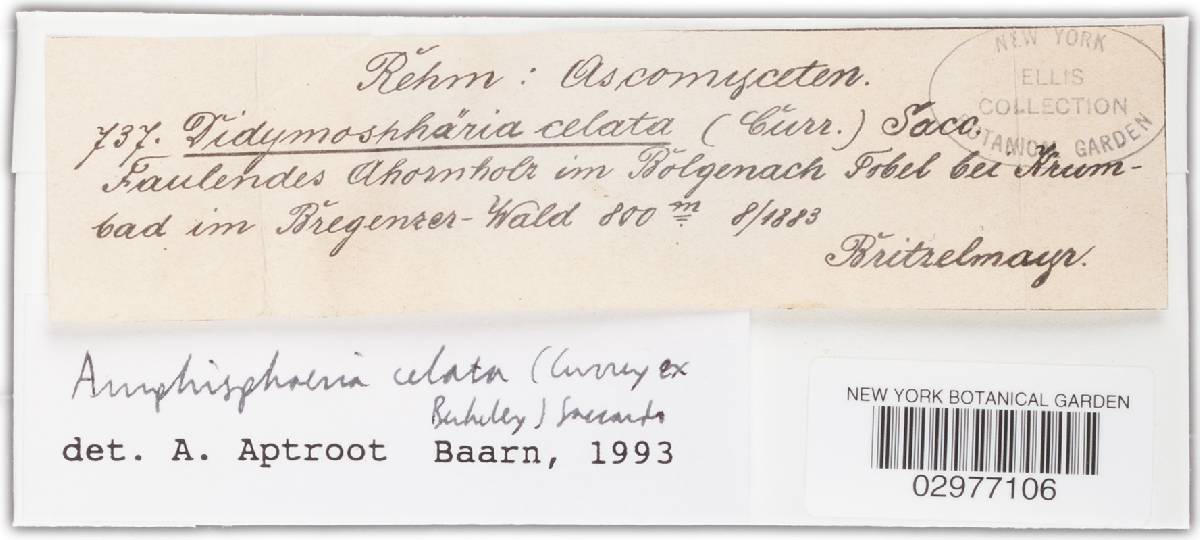 Rehm : Ascomyceten.
NEW YORK
ELLIS
COLLECTION
BOTANICAL GARDEN
737. Didymosphäria celata (Curr.) Sacc.
Faulendes Ahornholz im Bolgenach Tobel bei Krum-
bad im Bregenzer-Wald 800 m 8/1883
Britzelmayr.
Amphisphaeria celata (Currey ex
Berkeley) Saccardo
det. A. Aptroot Baarn, 1993
NEW YORK BOTANICAL GARDEN
02977106